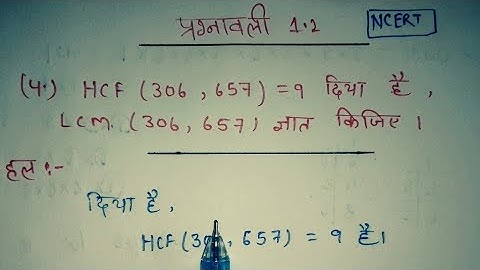 प्रश्नावली 1.2
NCERT
(4.) HCF (306, 657) = 9 दिया है,
LCM. (306, 657) ज्ञात किजिए ।
हल :-
दिया है,
HCF(306, 657) = 9 है।